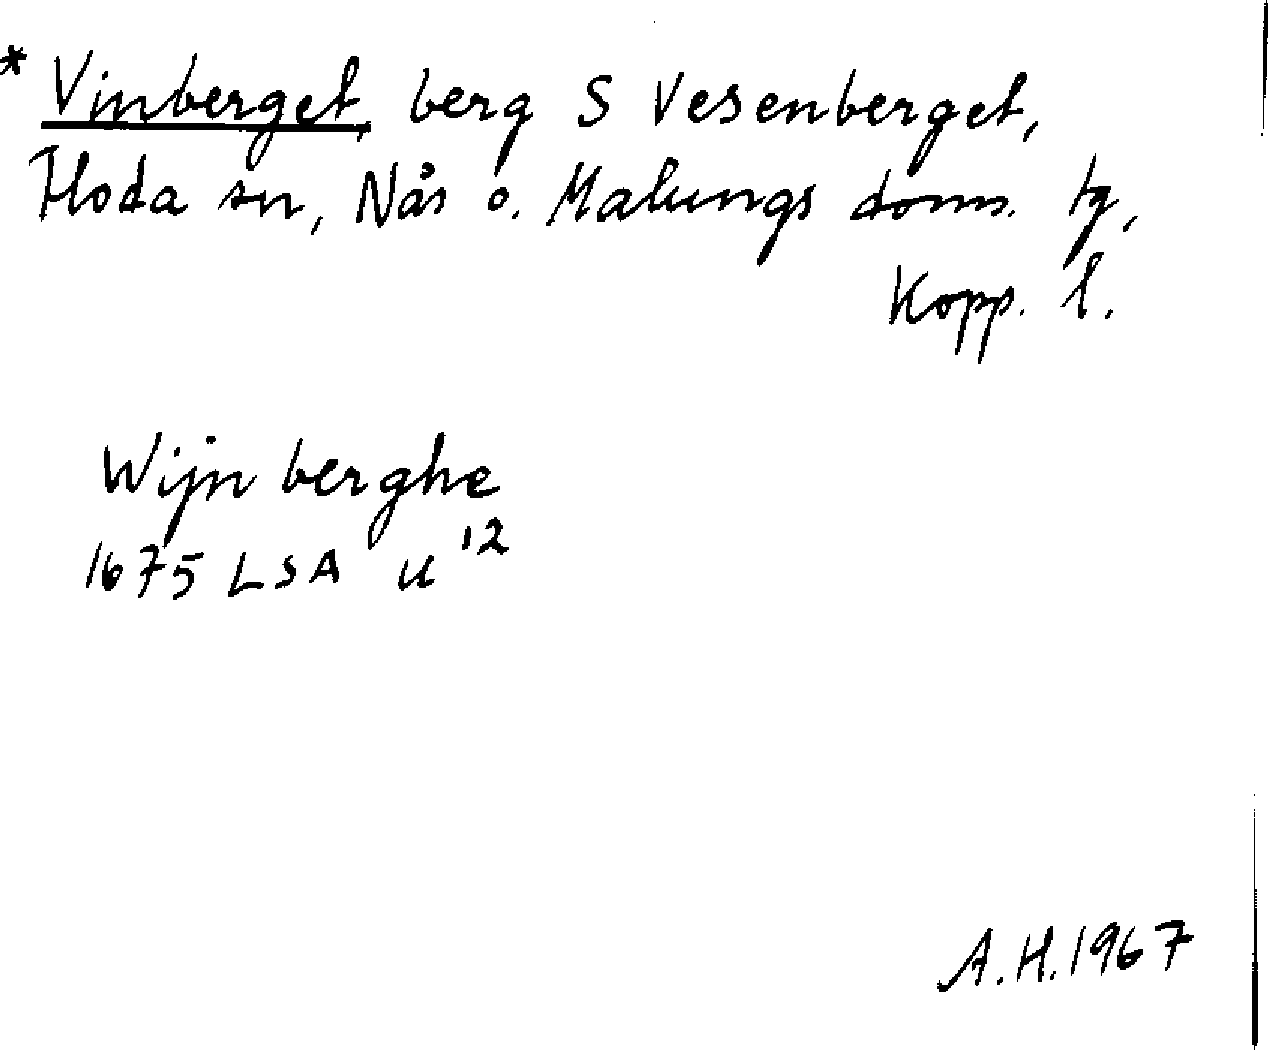 * Vinberget, berg S Vesenberget,
Floda sn, Nås o. Malungs doms. tg,
Kopp. l.
Wijnberghe
1675 LSA u 12
A.H. 1967